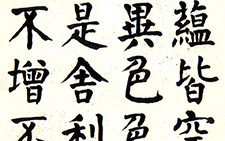 蘊皆空
異色色
是舍利
不增不